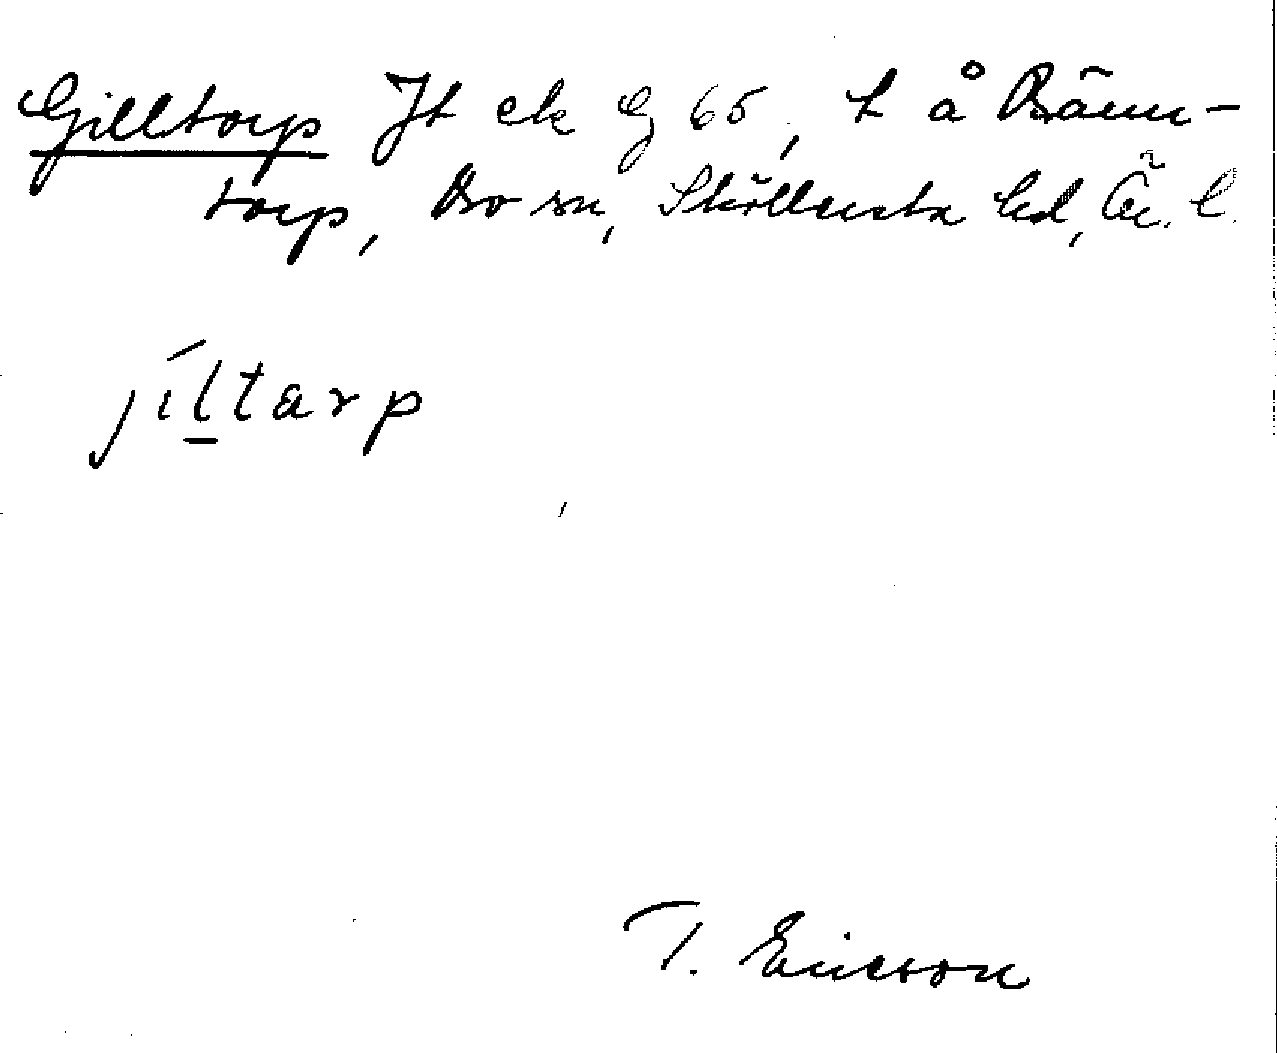 Gilltorp Jt ek G 65, t å Bänn-
torp, Bo sn, Sköllersta hd, Ö. l.
jíltarp
T. Ericson